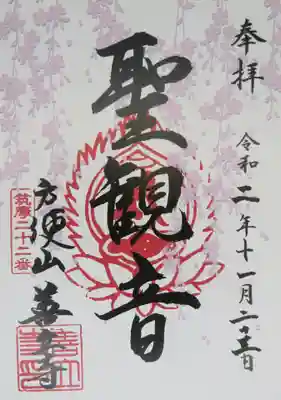 奉拝
令和二年十一月二十三日
聖観音
筑摩二十二番
方便山